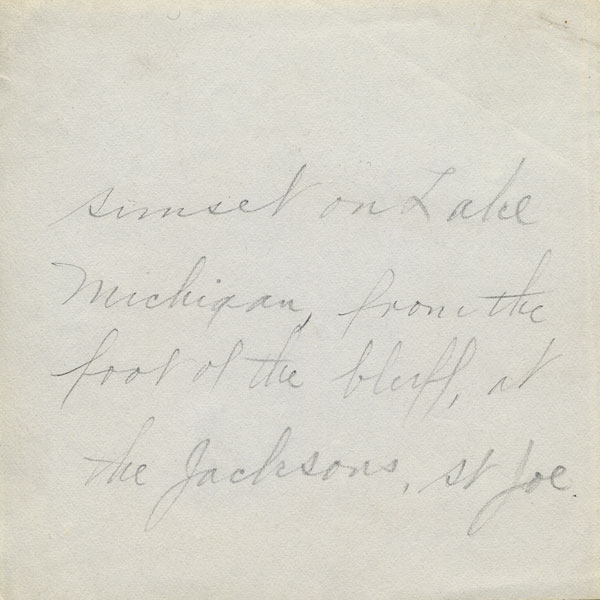 sunset on Lake
Michigan, from the
foot of the bluff, at
the Jacksons, st Joe